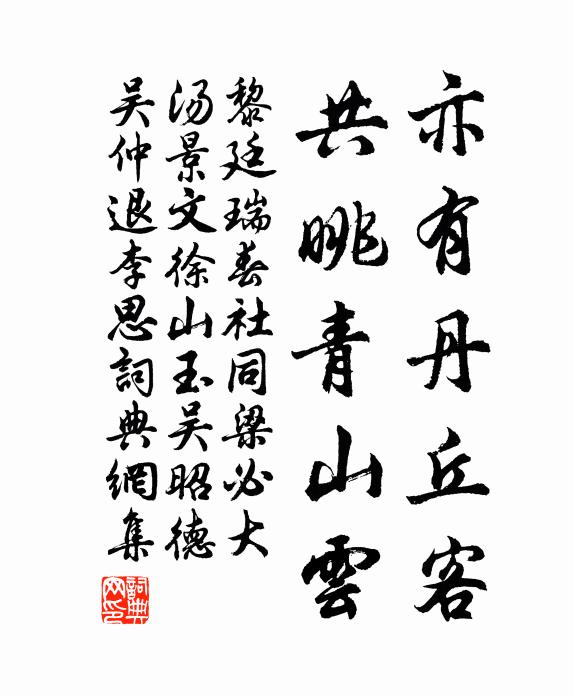 亦有丹丘客
共眺青山雲
黎廷瑞春社同梁必大
汤景文徐山玉吴昭德
吴仲退李思詞典網集
詞典
网印